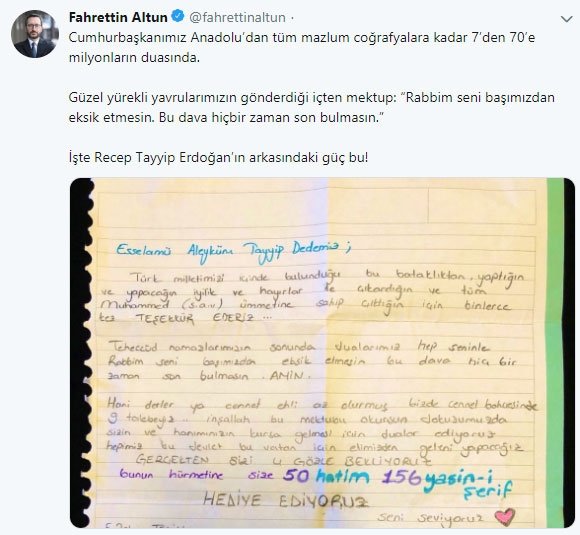 Fahrettin Altun @fahrettinaltun ·
Cumhurbaşkanımız Anadolu'dan tüm mazlum coğrafyalara kadar 7'den 70'e
milyonların duasında.
Güzel yürekli yavrularımızın gönderdiği içten mektup: “Rabbim seni başımızdan
eksik etmesin. Bu dava hiçbir zaman son bulmasın.”
İşte Recep Tayyip Erdoğan'ın arkasındaki güç bu!
Esselamü Aleyküm Tayyip Dedemiz ;
Türk milletimizi içinde bulunduğu bu bataklıktan, yaptığın
ve yapacağın iyilik ve hayırlar ile çıkardığın ve tüm
Muhammed (s.a.v) ümmetine sahip çıktığın için binlerce
kez TEŞEKKÜR EDERİZ ...
Teheccüd namazlarımızın sonunda dualarımız hep seninle
Rabbim seni başımızdan eksik etmesin bu dava hiç bir
zaman son bulmasın. AMİN.
Hani derler ya cennet ehli az olurmuş bizde cennet bahçesinde
9 talebeyiz... inşallah bu mektubu okursun dokuzumuzda
sizin ve hanımınızın kursa gelmesi için dualar ediyoruz
hepimiz bu devlet bu vatan için elimizden geleni yapacağız
GERÇEKTEN SİZİ 4 GÖZLE BEKLİYORUZ
bunun hürmetine size 50 hatim 156 yasin-i
şerif
HEDİYE EDİYORUZ
seni seviyoruz